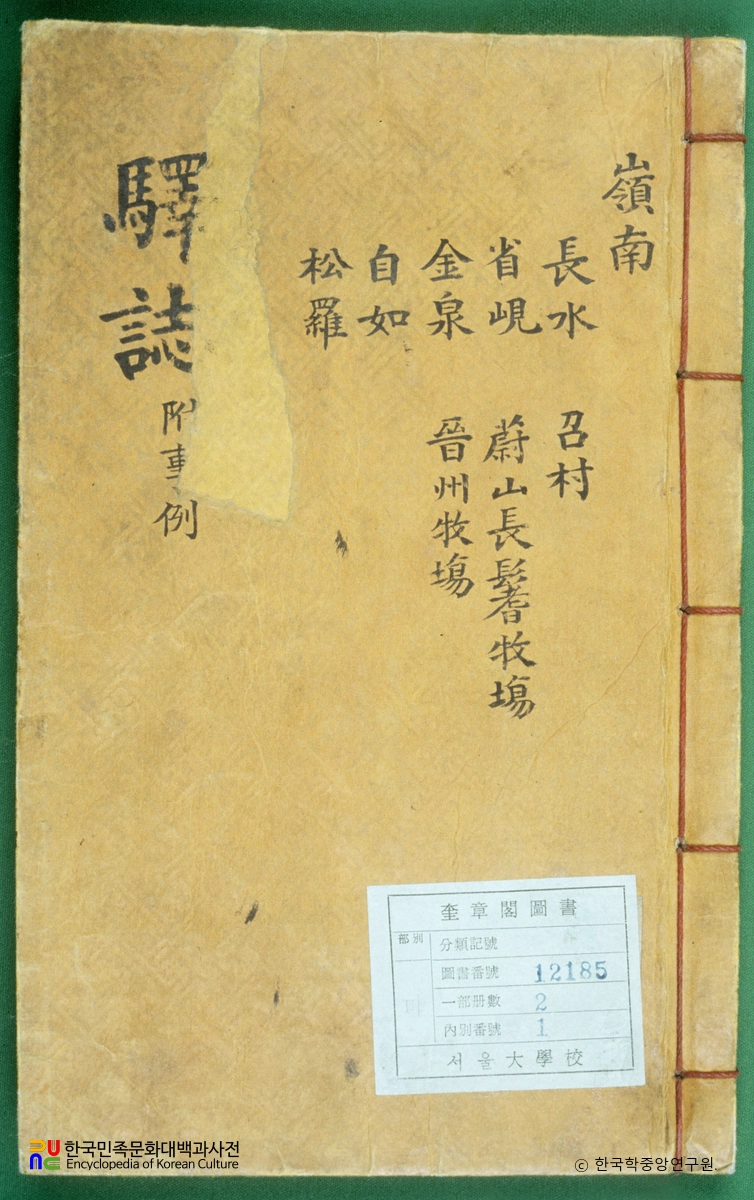 嶺南
長水
省峴
金泉
自如
松羅
召村
蔚山長鬐牧塲
晉州牧塲
驛誌
附事例
奎章閣圖書
部別
分類記號
圖書番號 12185
一部册數 2
內別番號 1
서울大學校
한국민족문화대백과사전
Encyclopedia of Korean Culture
ⓒ 한국학중앙연구원.